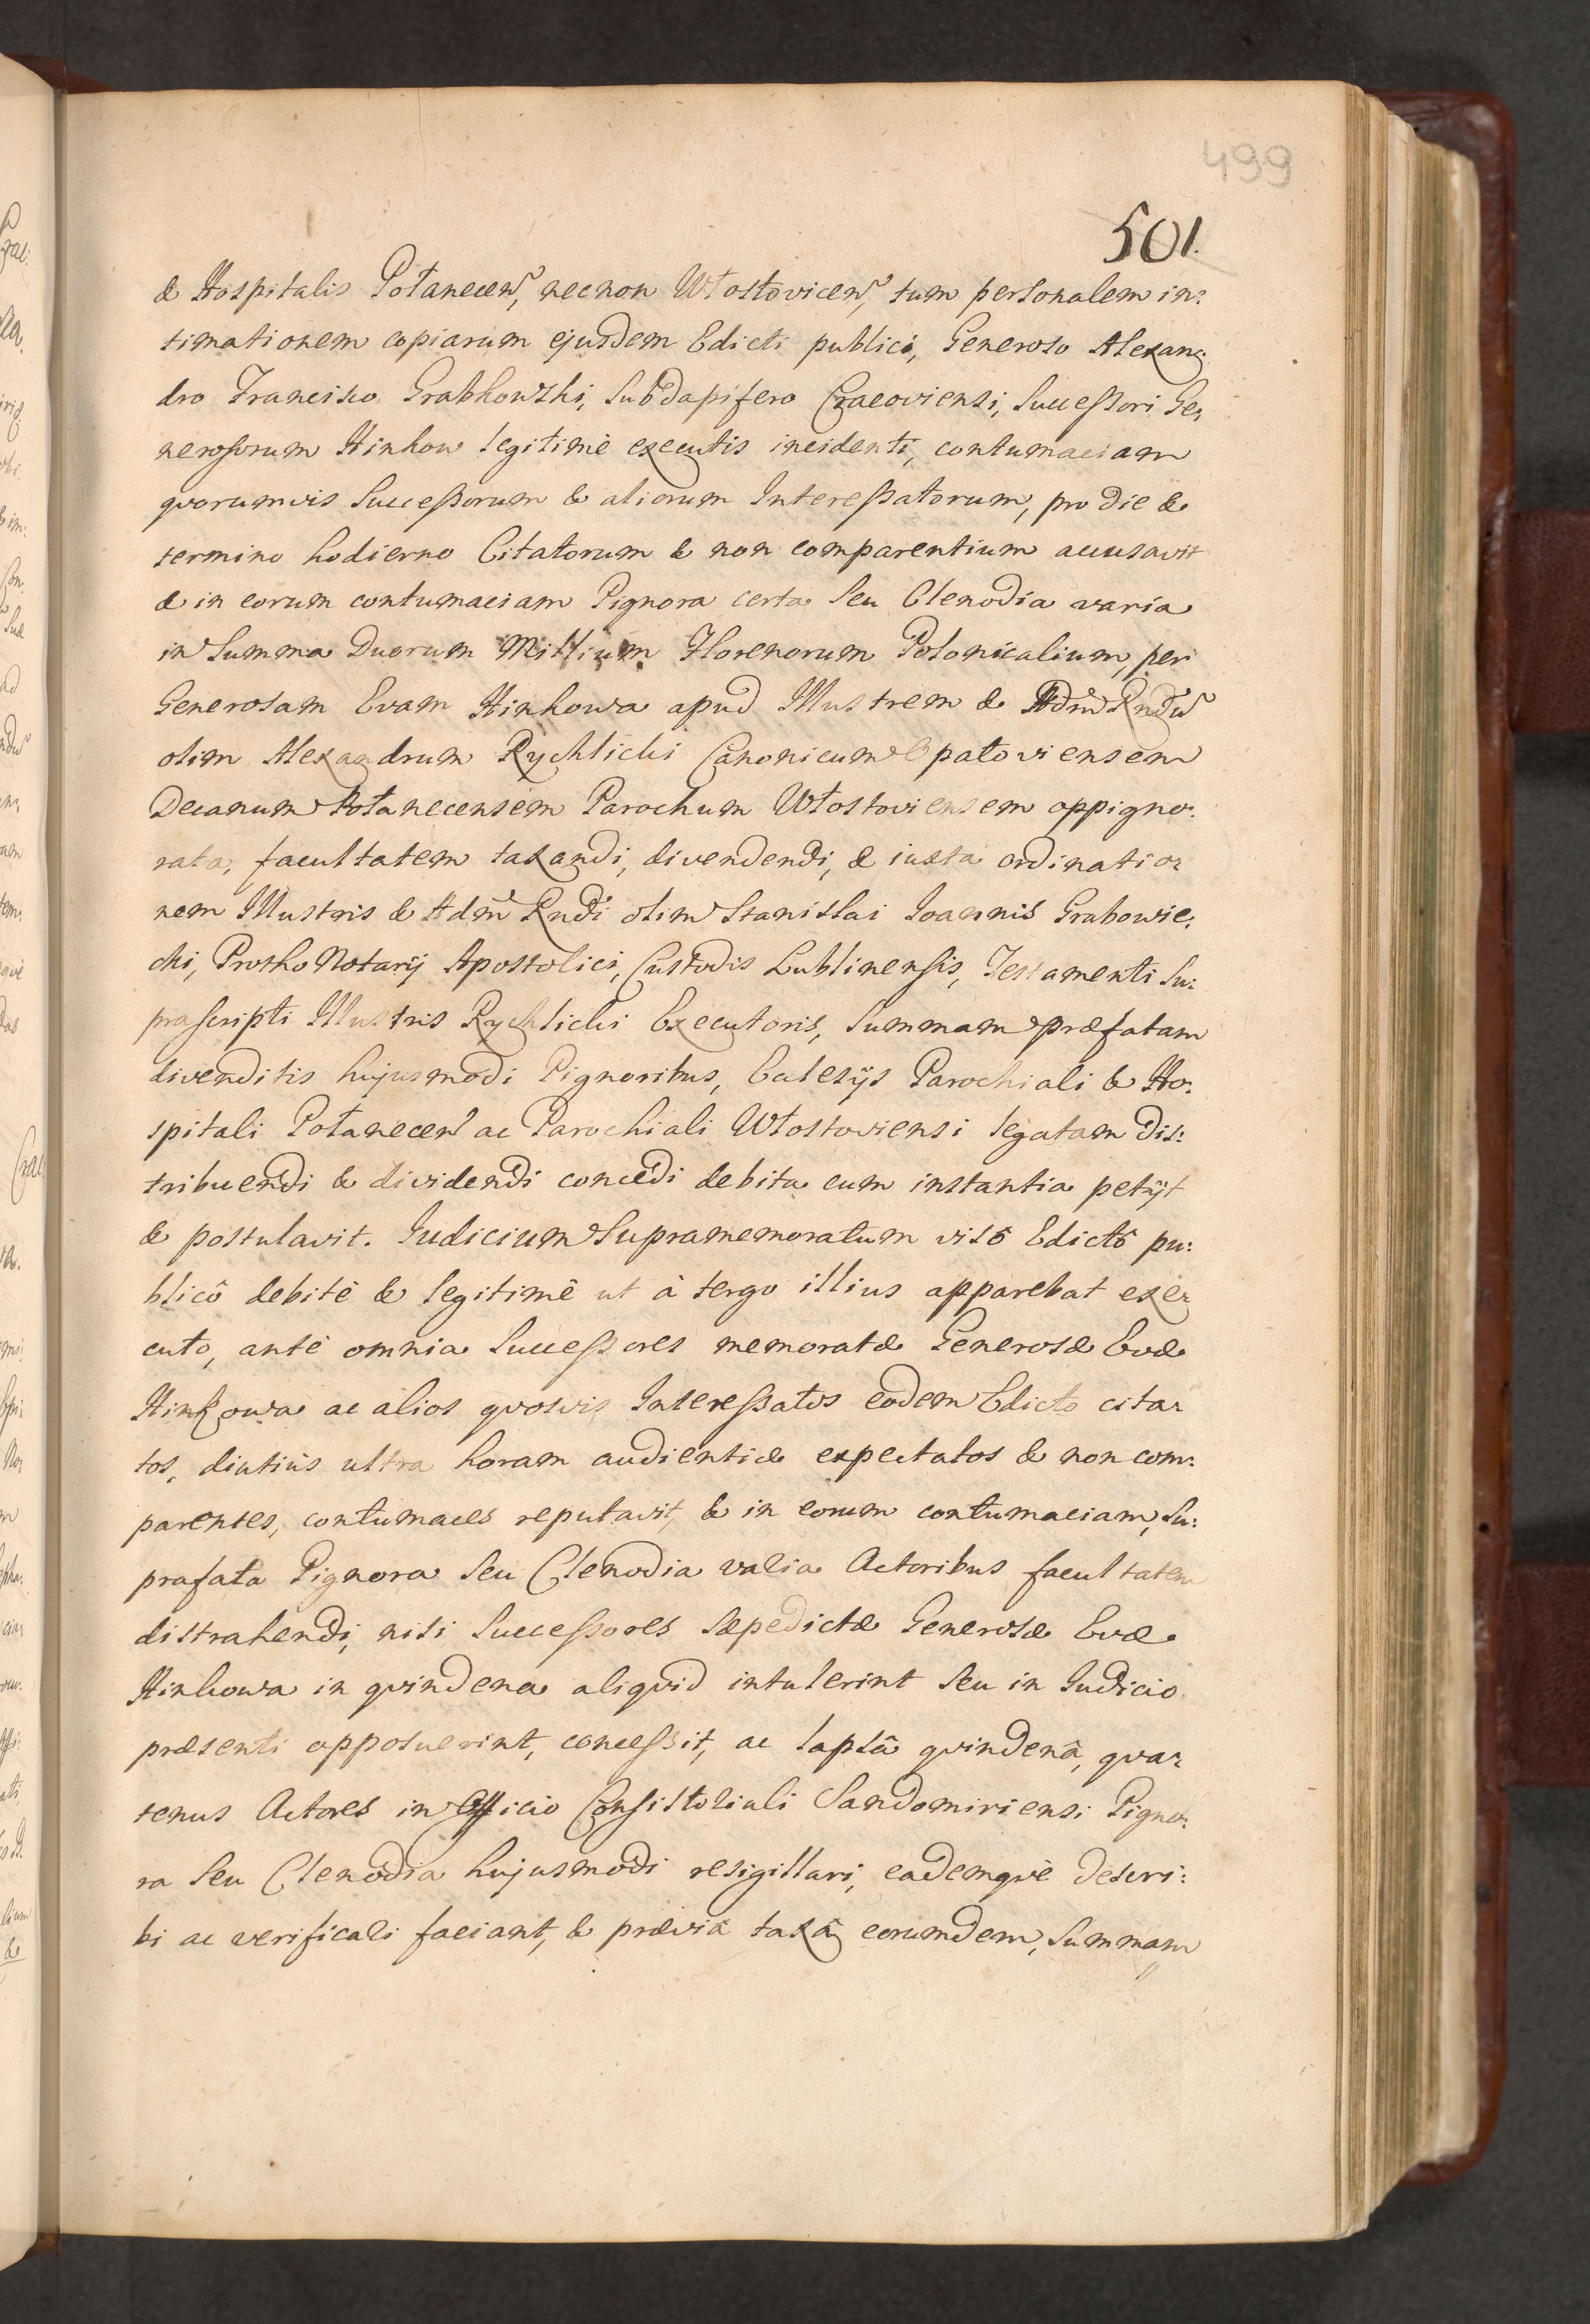 499
501.
& Hospitalis Połanecen, necnon Włostovicen, tum personalem in:
timationem copiarum ejusdem Edicti publici, Generoso Alexan:
dro Francisco Grabkowski, Subdapifero Cracoviensi, Successori Ge:
nerosorum Hinkow legitimè executis incidenti, contumaciam
quorumvis Successorum & aliorum Interessatorum, pro die &
termino hodierno Citatorum & non comparentium accusavit
& in eorum contumaciam Pignora certa seu Clenodia varia
in Summa Duorum Millium Florenorum Polonicalium, per
Generosam Evam Hinkowa apud Illustrem & Adm̃ Rndũ
olim Alexandrum Rychlicki Canonicum Opatoviensem
Decanum Połanecensem Parochum Włostoviensem oppigno:
rata, facultatem taxandi, divendendi, & iuxta ordinatio:
nem Illustris & Adm̃ Rndi olim Stanislai Joannis Grabowie:
cki, ProthoNotarij Apostolici, Custodis Lublinensis, Testamenti Su:
prascripti Illustris Rychlicki Executoris, Summam præfatam
divenditis hujusmodi Pignoribus, Ecclesijs Parochiali & Ho:
spitali Połanecen ac Parochiali Włostoviensi legatam dis:
tribuendi & dividendi concedi debita cum instantia petijt
& postulavit. Iudicium Supramemoratum visô Edictô pu:
blicô debitè & legitimè ut à tergo illius apparebat exe:
cuto, antè omnia Successores memoratæ Generosæ Evæ
Hinkowa ac alios quosvis Interessatos eodem Edicto cita:
tos, diutiùs ultra horam audientiæ expectatos & non com:
parentes, contumaces reputavit, & in eorum contumaciam, Su:
prafata Pignora seu Clenodia varia Actoribus facultatem
distrahendi, nisi Successores sæpedictæ Generosæ Evæ
Hinkowa in quindena aliquid intulerint seu in Iudicio
præsenti opposuerint, concessit, ac lapsâ quindenâ, qua:
tenus Actores in Officio Consistoriali Sandomiriensi Pigno:
ra seu Clenodia hujusmodi resigillari, eademquè descri:
bi ac verificari faciant, & præviâ taxâ eorumdem, Summam